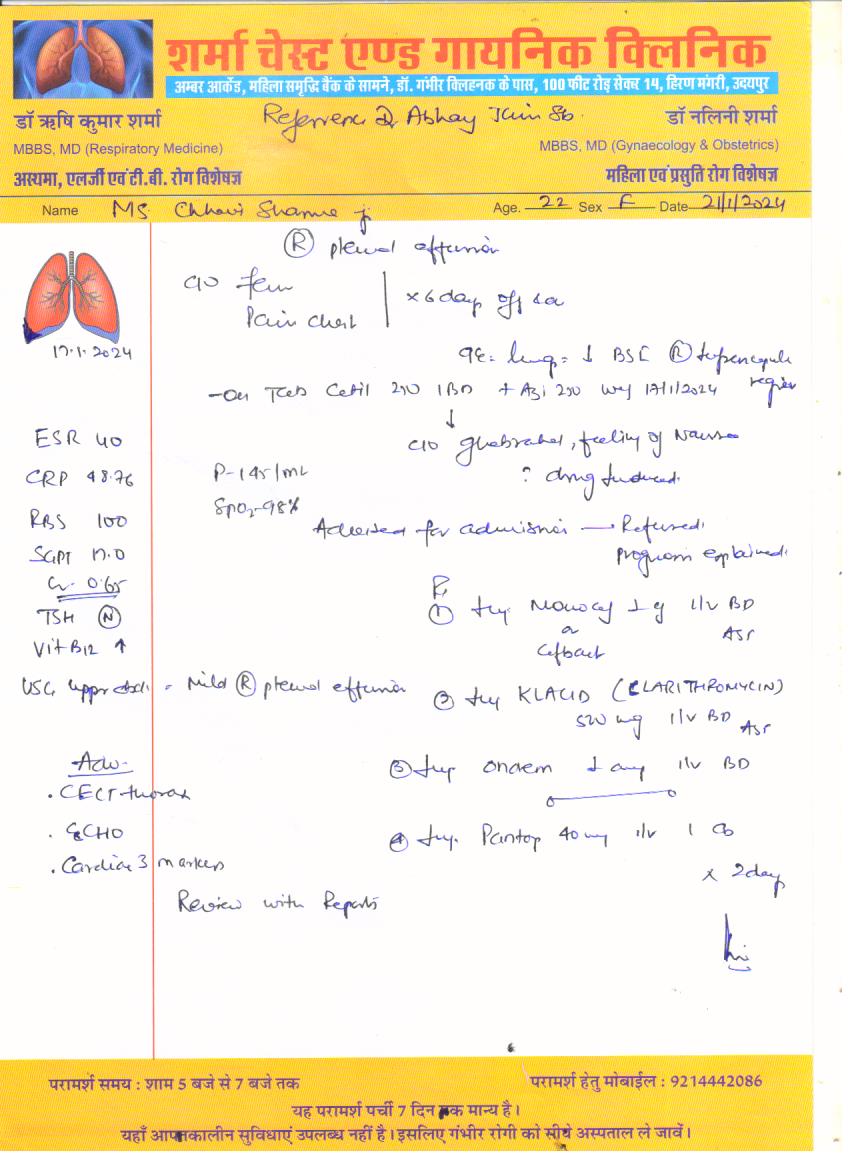 शर्मा चेस्ट एण्ड गायनिक क्लिनिक
अम्बर आर्केड, महिला समृद्धि बैंक के सामने, डॉ. गंभीर क्लिहनक के पास, 100 फीट रोड़ सेक्टर 14, हिरण मंगरी, उदयपुर
डॉ ऋषि कुमार शर्मा
MBBS, MD (Respiratory Medicine)
अस्थमा, एलर्जी एवं टी.बी. रोग विशेषज्ञ
Abhay Jain Sb.
डॉ नलिनी शर्मा
MBBS, MD (Gynaecology & Obstetrics)
महिला एवं प्रसुति रोग विशेषज्ञ
Name Ms. Chhavi Sharma ji Age. 22 Sex F Date 21/1/2024
(R) pleural effusion
c/o fever
Pain chest
x 6 day off & on
17.1.2024
O/E: lung = ↓ BSE (R)
region
- On Tab 250 1 BD + Azi 250 17/1/2024
↓
c/o ghabrahat, feeling of Nausea
? drug induced.
ESR 40
CRP 48.76
RBS 100
SGPT 17.0
Cr. 0.65
TSH (N)
Vit B12 ↑
P-145/
SpO2-98%
Advised for admission → Refused.
explained.
Rx
(1) Inj. Monocef 1 g I/V BD
or AST
USG upper abd. = Mild (R) pleural effusion
(2) Inj KLACID (CLARITHROMYCIN)
500 mg I/V BD AST
(3) Inj. Ondem 1 amp I/V BD
(4) Inj. Pantop 40 mg I/V 1 OD
x 2 day
Adv.
. CECT thorax
. ECHO
. Cardiac 3 markers
Review with Reports
परामर्श समय : शाम 5 बजे से 7 बजे तक
परामर्श हेतु मोबाईल : 9214442086
यह परामर्श पर्ची 7 दिन तक मान्य है।
यहाँ आपातकालीन सुविधाएं उपलब्ध नहीं है। इसलिए गंभीर रोगी को सीधे अस्पताल ले जावें।